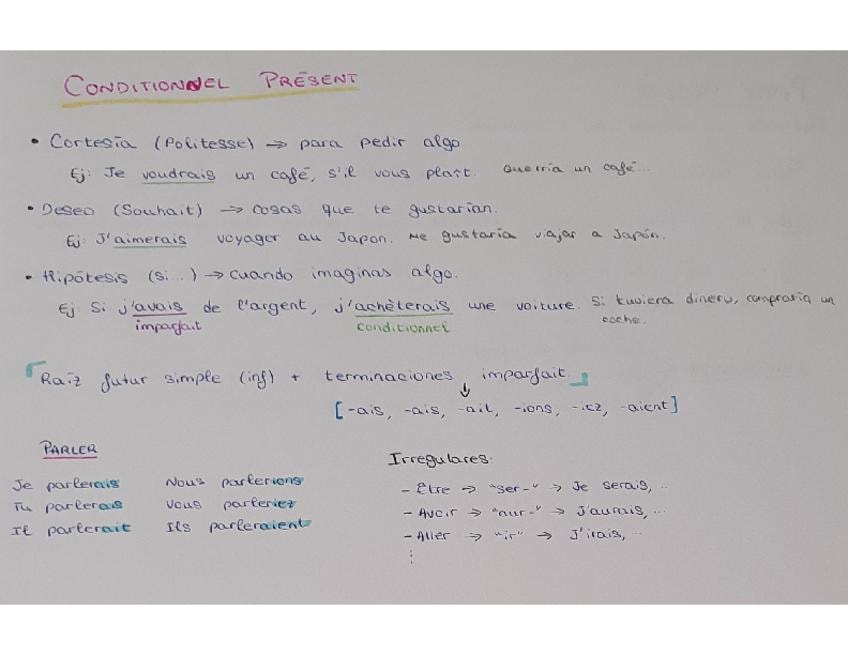 CONDITIONNEL PRÉSENT
• Cortesía (Politesse) → para pedir algo
Ej: Je voudrais un café, s'il vous plaît. Querría un café...
• Deseo (Souhait) → cosas que te gustarían.
Ej: J'aimerais voyager au Japon. Me gustaría viajar a Japón.
• Hipótesis (si...) → cuando imaginas algo.
Ej: Si j'avais de l'argent, j'achèterais une voiture. Si tuviera dinero, compraría un coche.
imparfait conditionnel
Raíz futur simple (inf) + terminaciones imparfait.
[-ais, -ais, -ait, -ions, -iez, -aient]
PARLER
Je parlerais Nous parlerions
Tu parlerais Vous parleriez
Il parlerait Ils parleraient
Irregulares:
- Être → "ser-" → Je serais, ...
- Avoir → "aur-" → J'aurais, ...
- Aller → "ir" → J'irais, ...
⋮